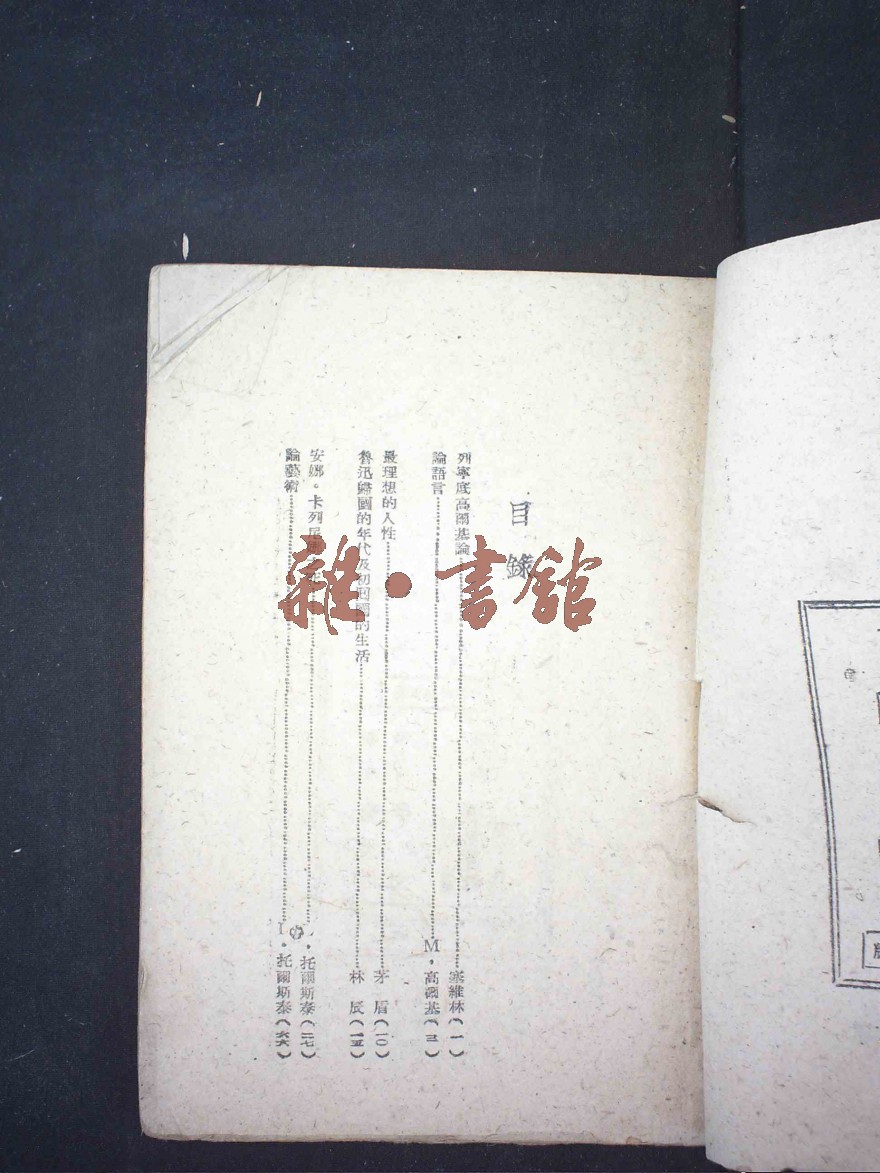 目錄
列寧底高爾基論………塞維林(一)
論語言………M·高爾基(三)
最理想的人性………茅 盾(一〇)
魯迅歸國的年代及初回國的生活………林 辰(一五)
安娜·卡列尼………托爾斯泰(二七)
論藝術………托爾斯泰(六六)
雜·書館